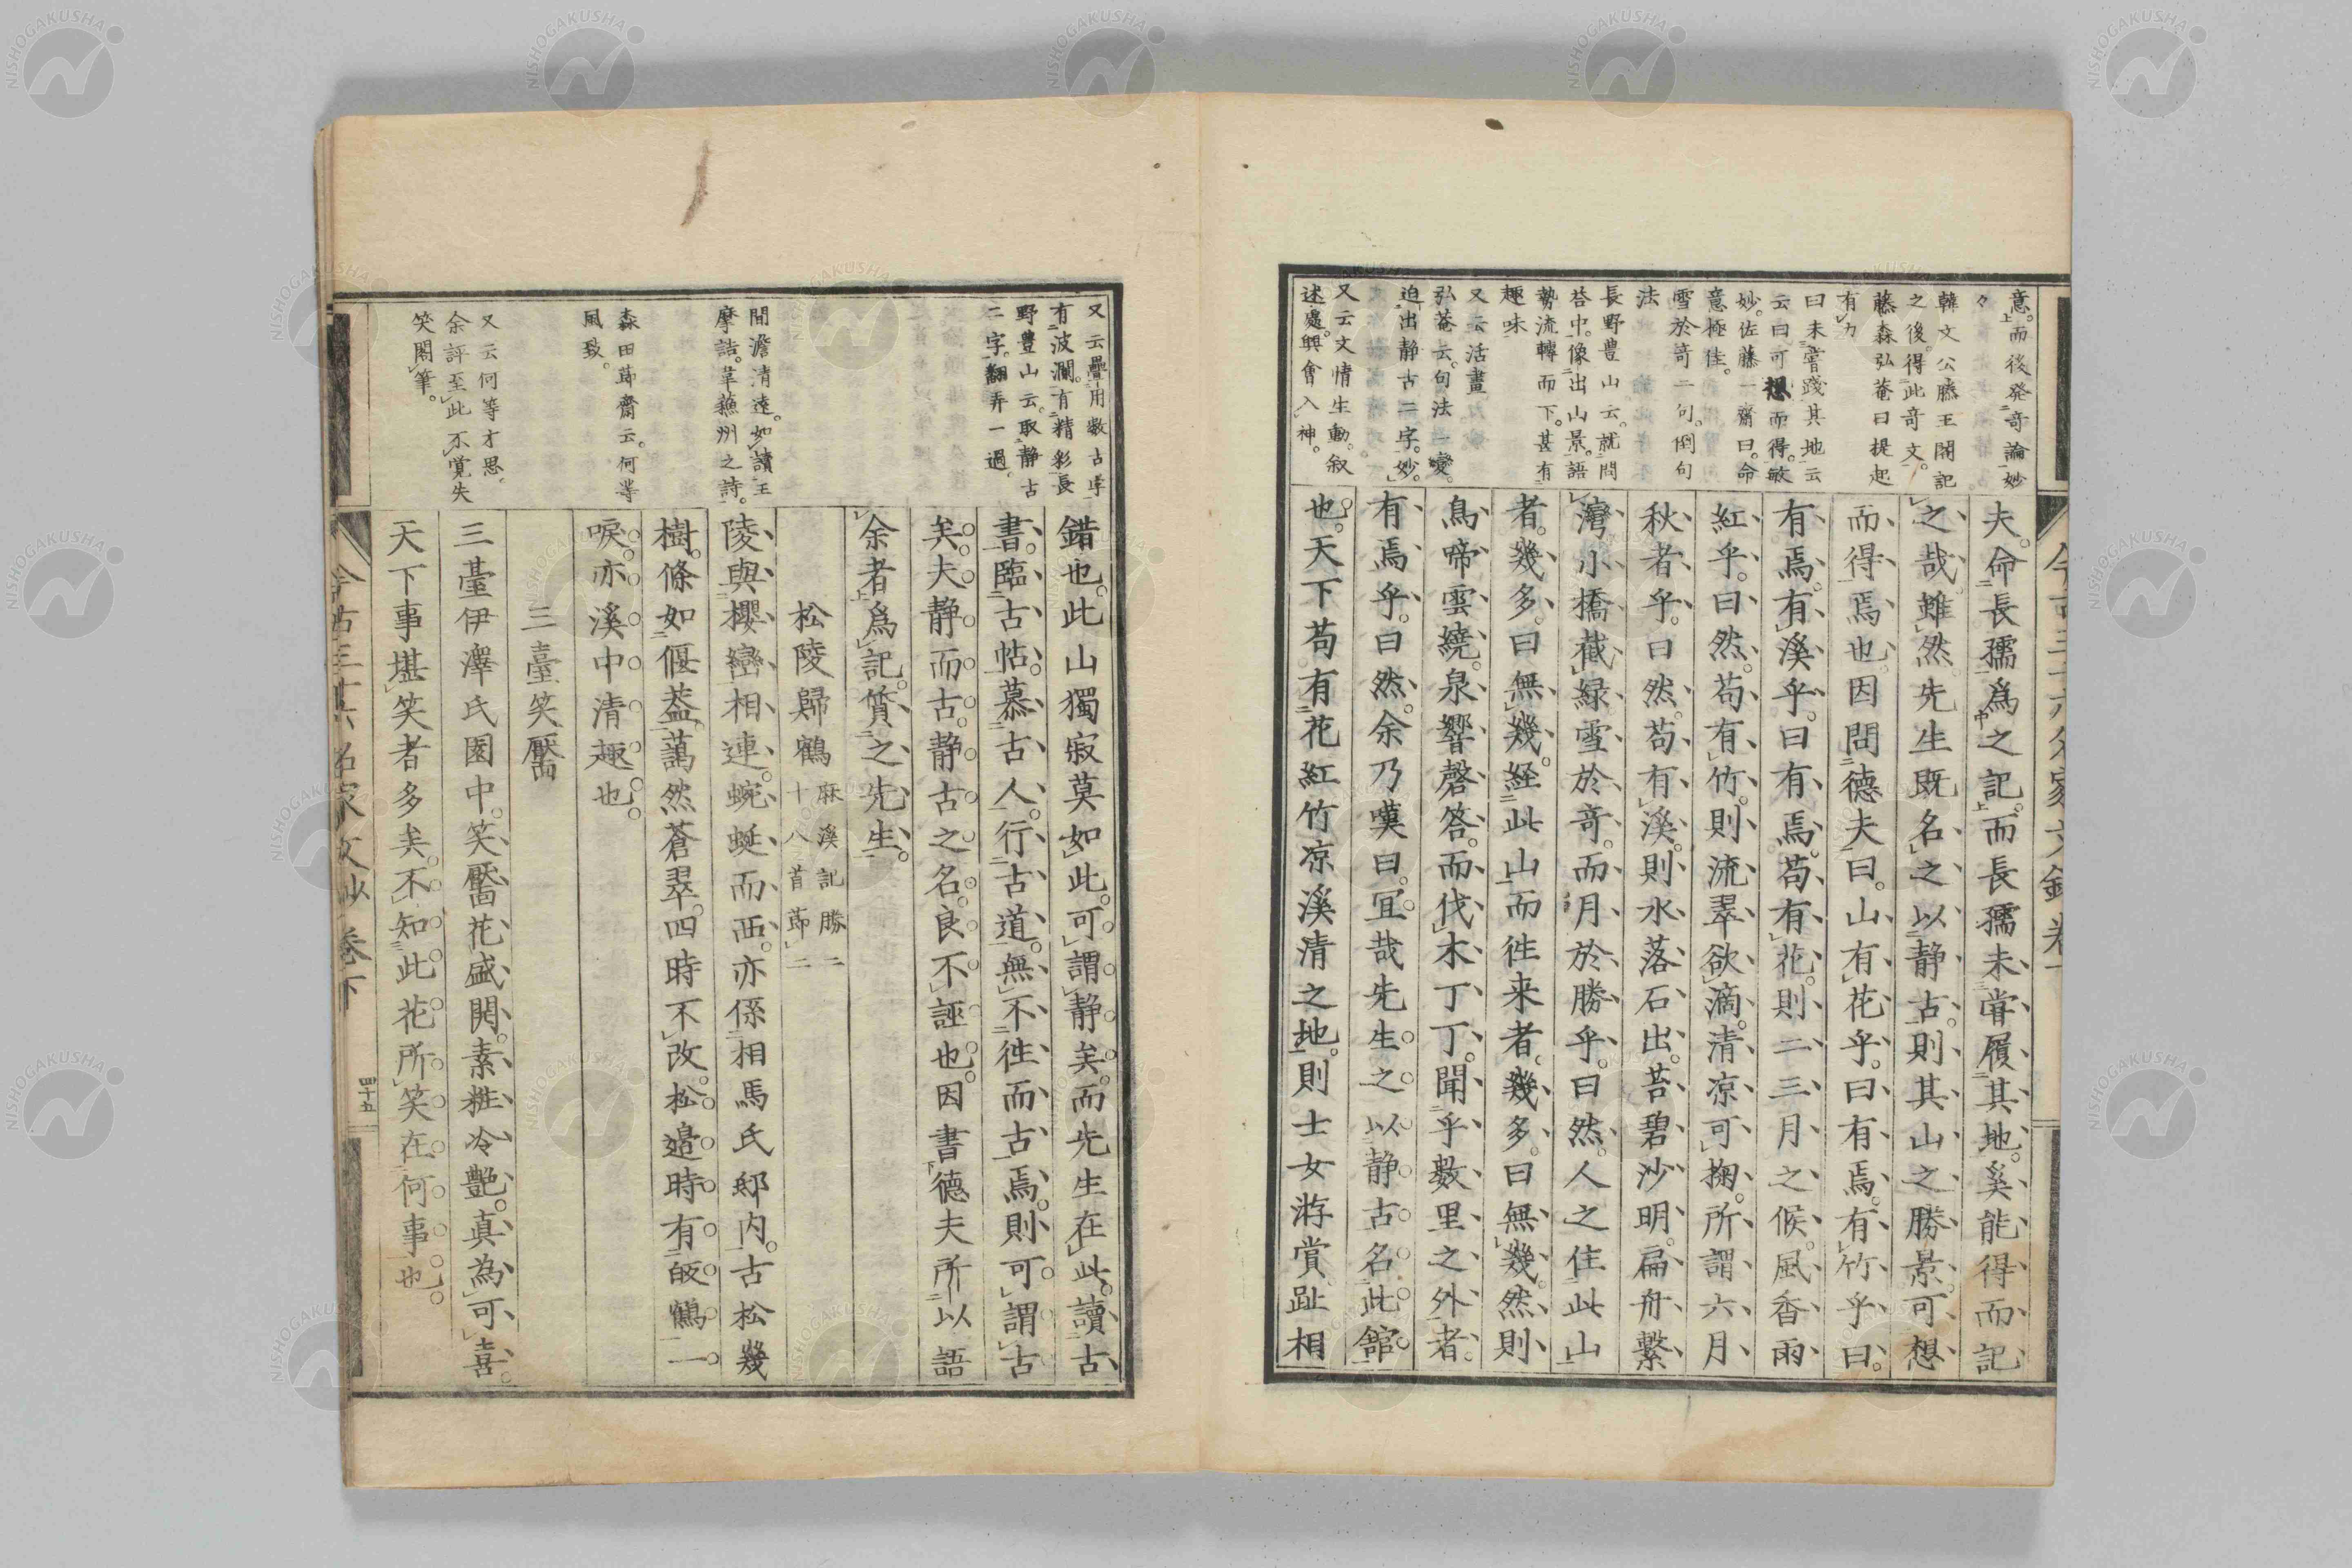 意。而後発奇論妙
々
韓文公滕王閣記
之後。得此奇文。
藤森弘菴曰提起
有力
曰未嘗踐其地云
云曰可想而得。敏
妙。佐藤一齋曰。命
意極佳。
雪於奇二句。倒句
法
長野豊山云。就問
荅中。像出山景。語
勢流轉而下。甚有
趣味
又云活畫
弘菴云。句法一變。
迫出静古二字。妙。
又云文情生動。叙
述處。興會入神。
夫。命長孺爲之記。而長孺未甞履其地。奚能得而記
之哉。雖然先生既名之以静古。則其山之勝景。可想
而得焉也。因問德夫曰。山有花乎。曰有焉。有竹乎。曰。
有焉。有溪乎。曰有焉。苟有花。則二三月之候。風香雨
紅乎。曰然。苟有竹。則流翠欲滴。清凉可掬。所謂六月
秋者乎。曰然。苟有溪。則水落石出。苔碧沙明。扁舟繫
灣小橋截緑雪於奇。而月於勝乎。曰然。人之住此山
者。幾多。曰無幾。経此山而徃来者。幾多。曰無幾。然則
鳥啼雲繞。泉響磬答。而伐木丁丁。聞乎數里之外者。
有焉乎。曰然。余乃嘆曰。冝哉先生之以静古名此館
也。天下苟有花紅竹凉溪清之地。則士女游賞趾相
又云疊用數古字
有波瀾。有精彩長
野豊山云。取静古
二字。翻弄一過
間澹清遠。如讀王
摩詰。韋蘓州之詩。
森田莭齋云。何等
風致。
又云何等才思。
余評至此不覚失
笑閣筆。
錯也。此山獨寂莫如此。可謂静矣。而先生在此。讀古
書。臨古帖。慕古人。行古道。無不徃而古焉。則可謂古
矣。夫静而古。古静古之名。良不誣也。因書德夫所以語
余者爲記。質之先生。
松陵歸鶴 麻溪記勝二
十八首莭二
陵與櫻巒相連。蜿蜒而西。亦係相馬氏邸内。古松幾
樹。條如偃蓋。藹然蒼翠。四時不改。松邉時有皈鶴一
唳。亦溪中清趣也。
三臺笑靨
三臺伊澤氏園中。笑靨花盛開。素粧冷艶。真為可喜。
天下事堪笑者多矣。不知此花所笑在何事也。
今古三十六名家文鈔 巻下
四十五